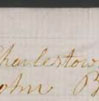 Charlestow
John P